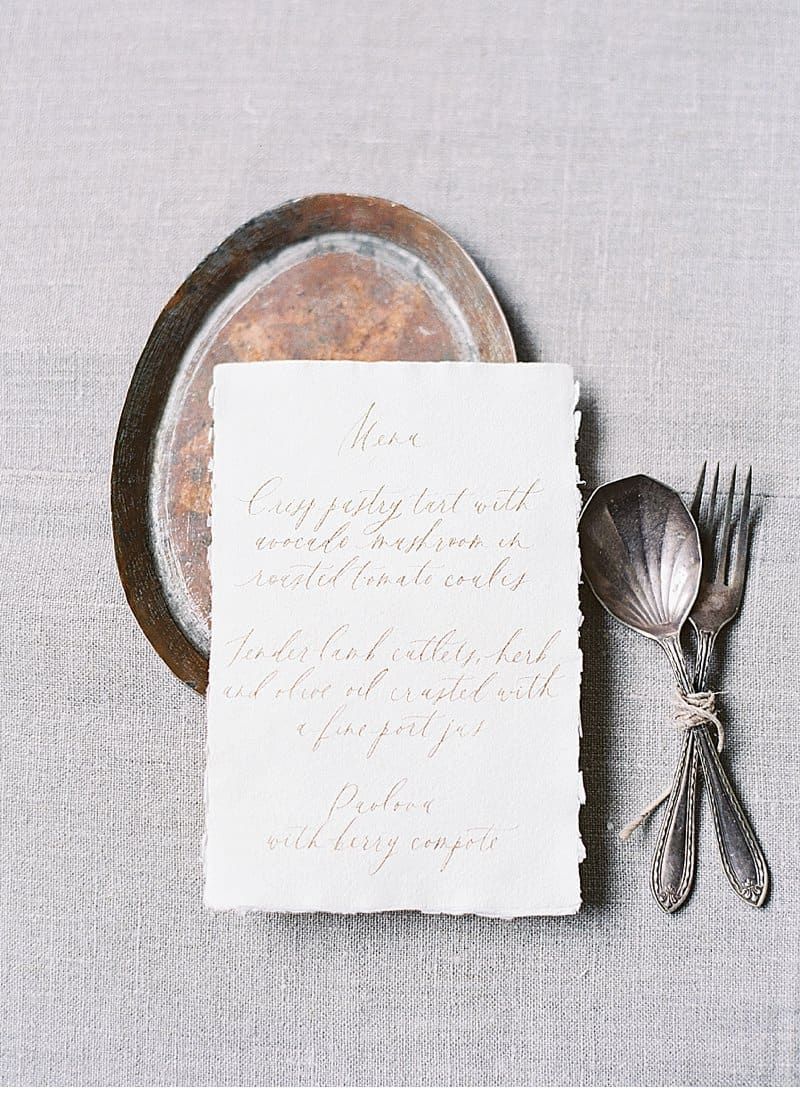 Menu
Crisp pastry tart with
avocado mushroom en
roasted tomato coulis
Tender lamb cutlets, herb
and olive oil crusted with
a fine port jus
Pavlova
with berry compote